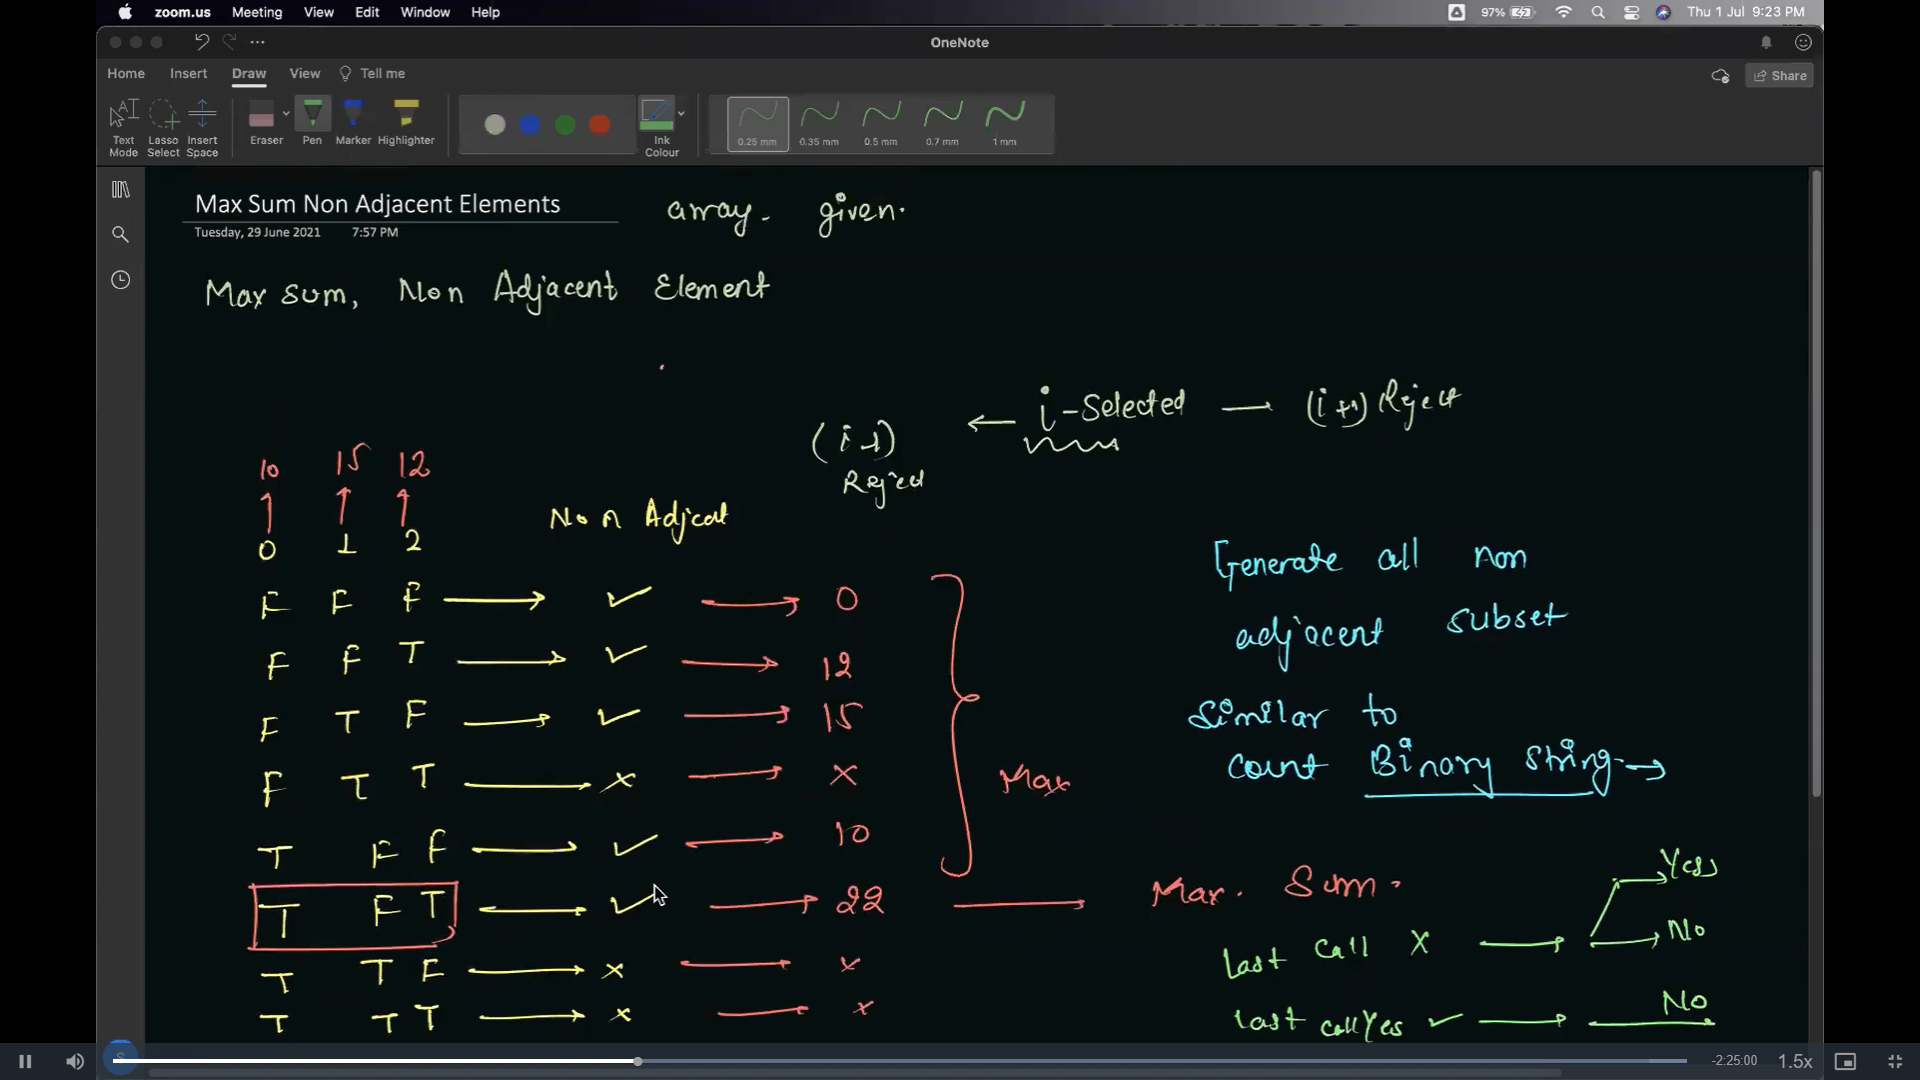 zoom.us Meeting View Edit Window Help 97% Thu 1 Jul 9:23 PM
OneNote
Home Insert Draw View Tell me Share
Text Mode Lasso Select Insert Space Eraser Pen Marker Highlighter Ink Colour 0.25 mm 0.35 mm 0.5 mm 0.7 mm 1 mm
Max Sum Non Adjacent Elements array. given.
Tuesday, 29 June 2021 7:57 PM
Max sum, Non Adjacent Element
(i-1) ← i-Selected — (i+1) Reject
Reject
10 15 12
Non Adjcat
0 1 2
F F F → ✓ → 0
F F T → ✓ → 12
F T F → ✓ → 15
F T T → x → x
T F F → ✓ → 10
T F T → ✓ → 22 → Max. Sum.
T T F → x → x
T T T → x → x
Max
Generate all non
adjacent subset
Similar to
count Binary string →
last call X → Yes
No
last call Yes ✓ → No
-2:25:00 1.5x